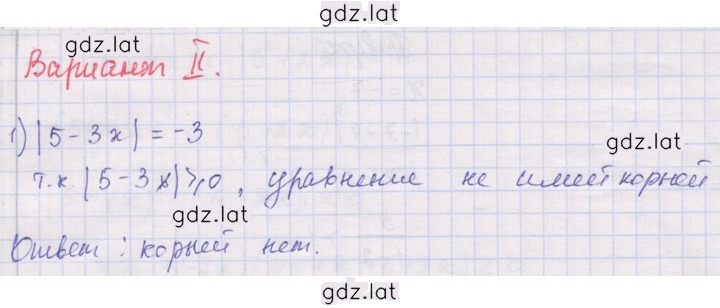 gdz.lat
gdz.lat
Вариант II.
1) |5 - 3x| = -3
gdz.lat
т.к. |5 - 3x| ⩾ 0, уравнение не имеет корней
gdz.lat
Ответ: корней нет.
gdz.lat